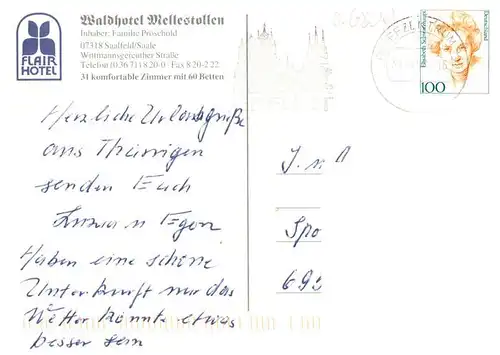 Waldhotel Mellestollen
Inhaber: Familie Pröschold
07318 Saalfeld/Saale
Wittmannsgereuther Straße
Telefon (0 36 71) 8 20-0 · Fax 8 20-2 22
31 komfortable Zimmer mit 60 Betten
FLAIR
HOTEL
BRIEFZENTRUM
Deutschland
100
Herzliche Urlaubsgrüße
aus Thüringen
senden Euch
u Egon
Haben eine schöne
Unterkunft nur das
Wetter könnte etwas
besser sein
J. u.
Spo
692